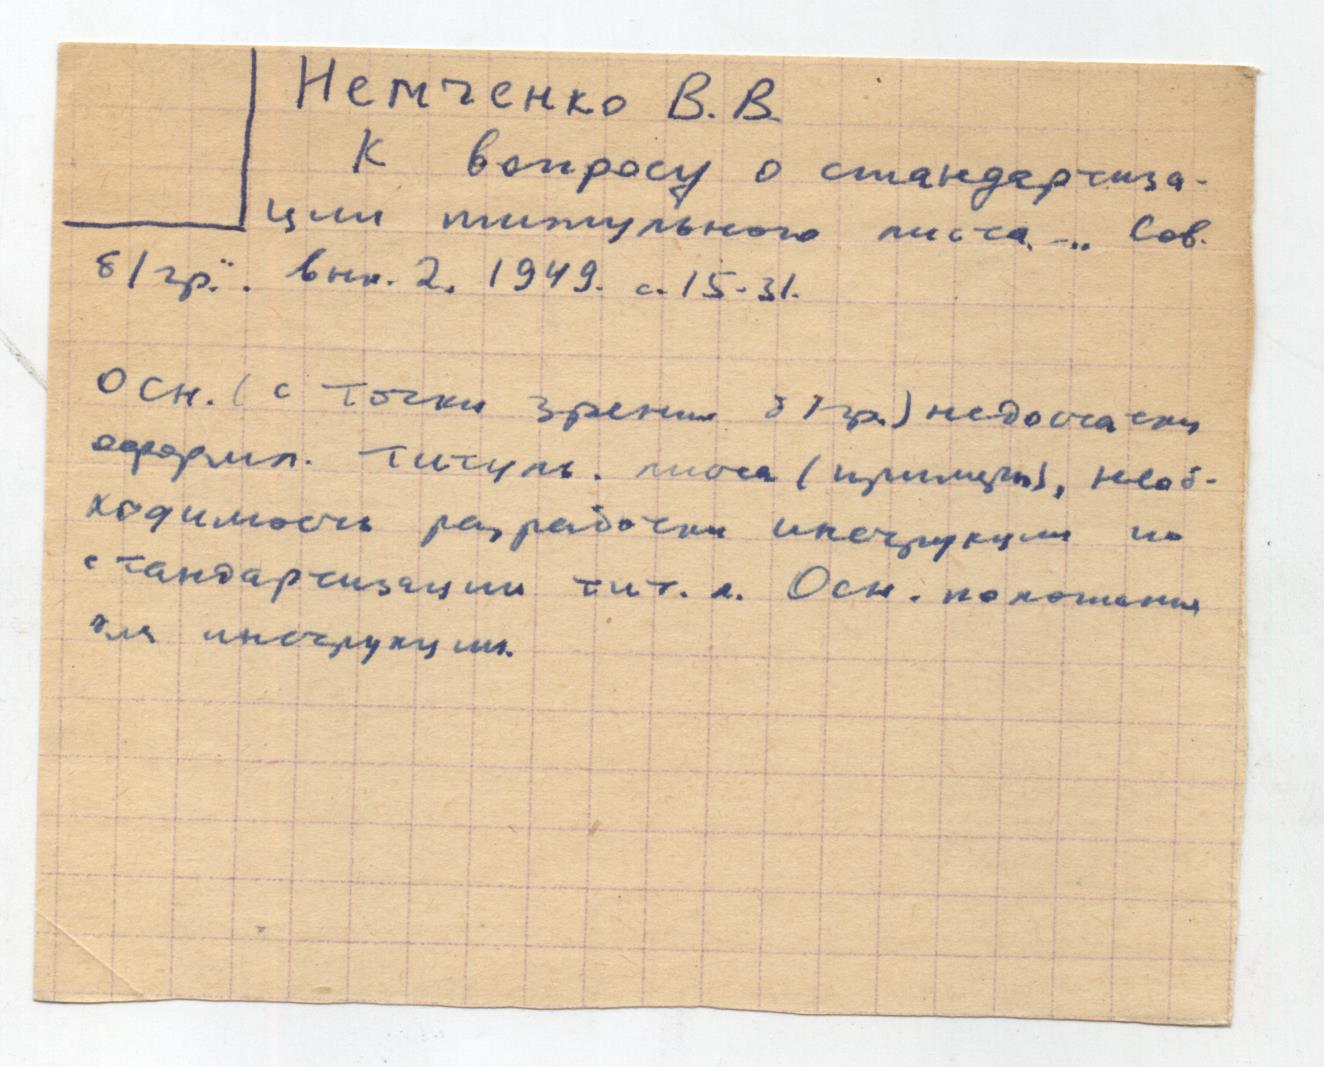 Немченко В. В.
К вопросу о стандартиза-
ции титульного листа. - „Сов.
б/гр.". вып. 2. 1949. с. 15-31.
Осн. (с точки зрения б/гр.) недостатки
оформл. титульн. листа (примеры), необ-
ходимость разработки инструкции по
стандартизации тит. л. Осн. положения
для инструкции.